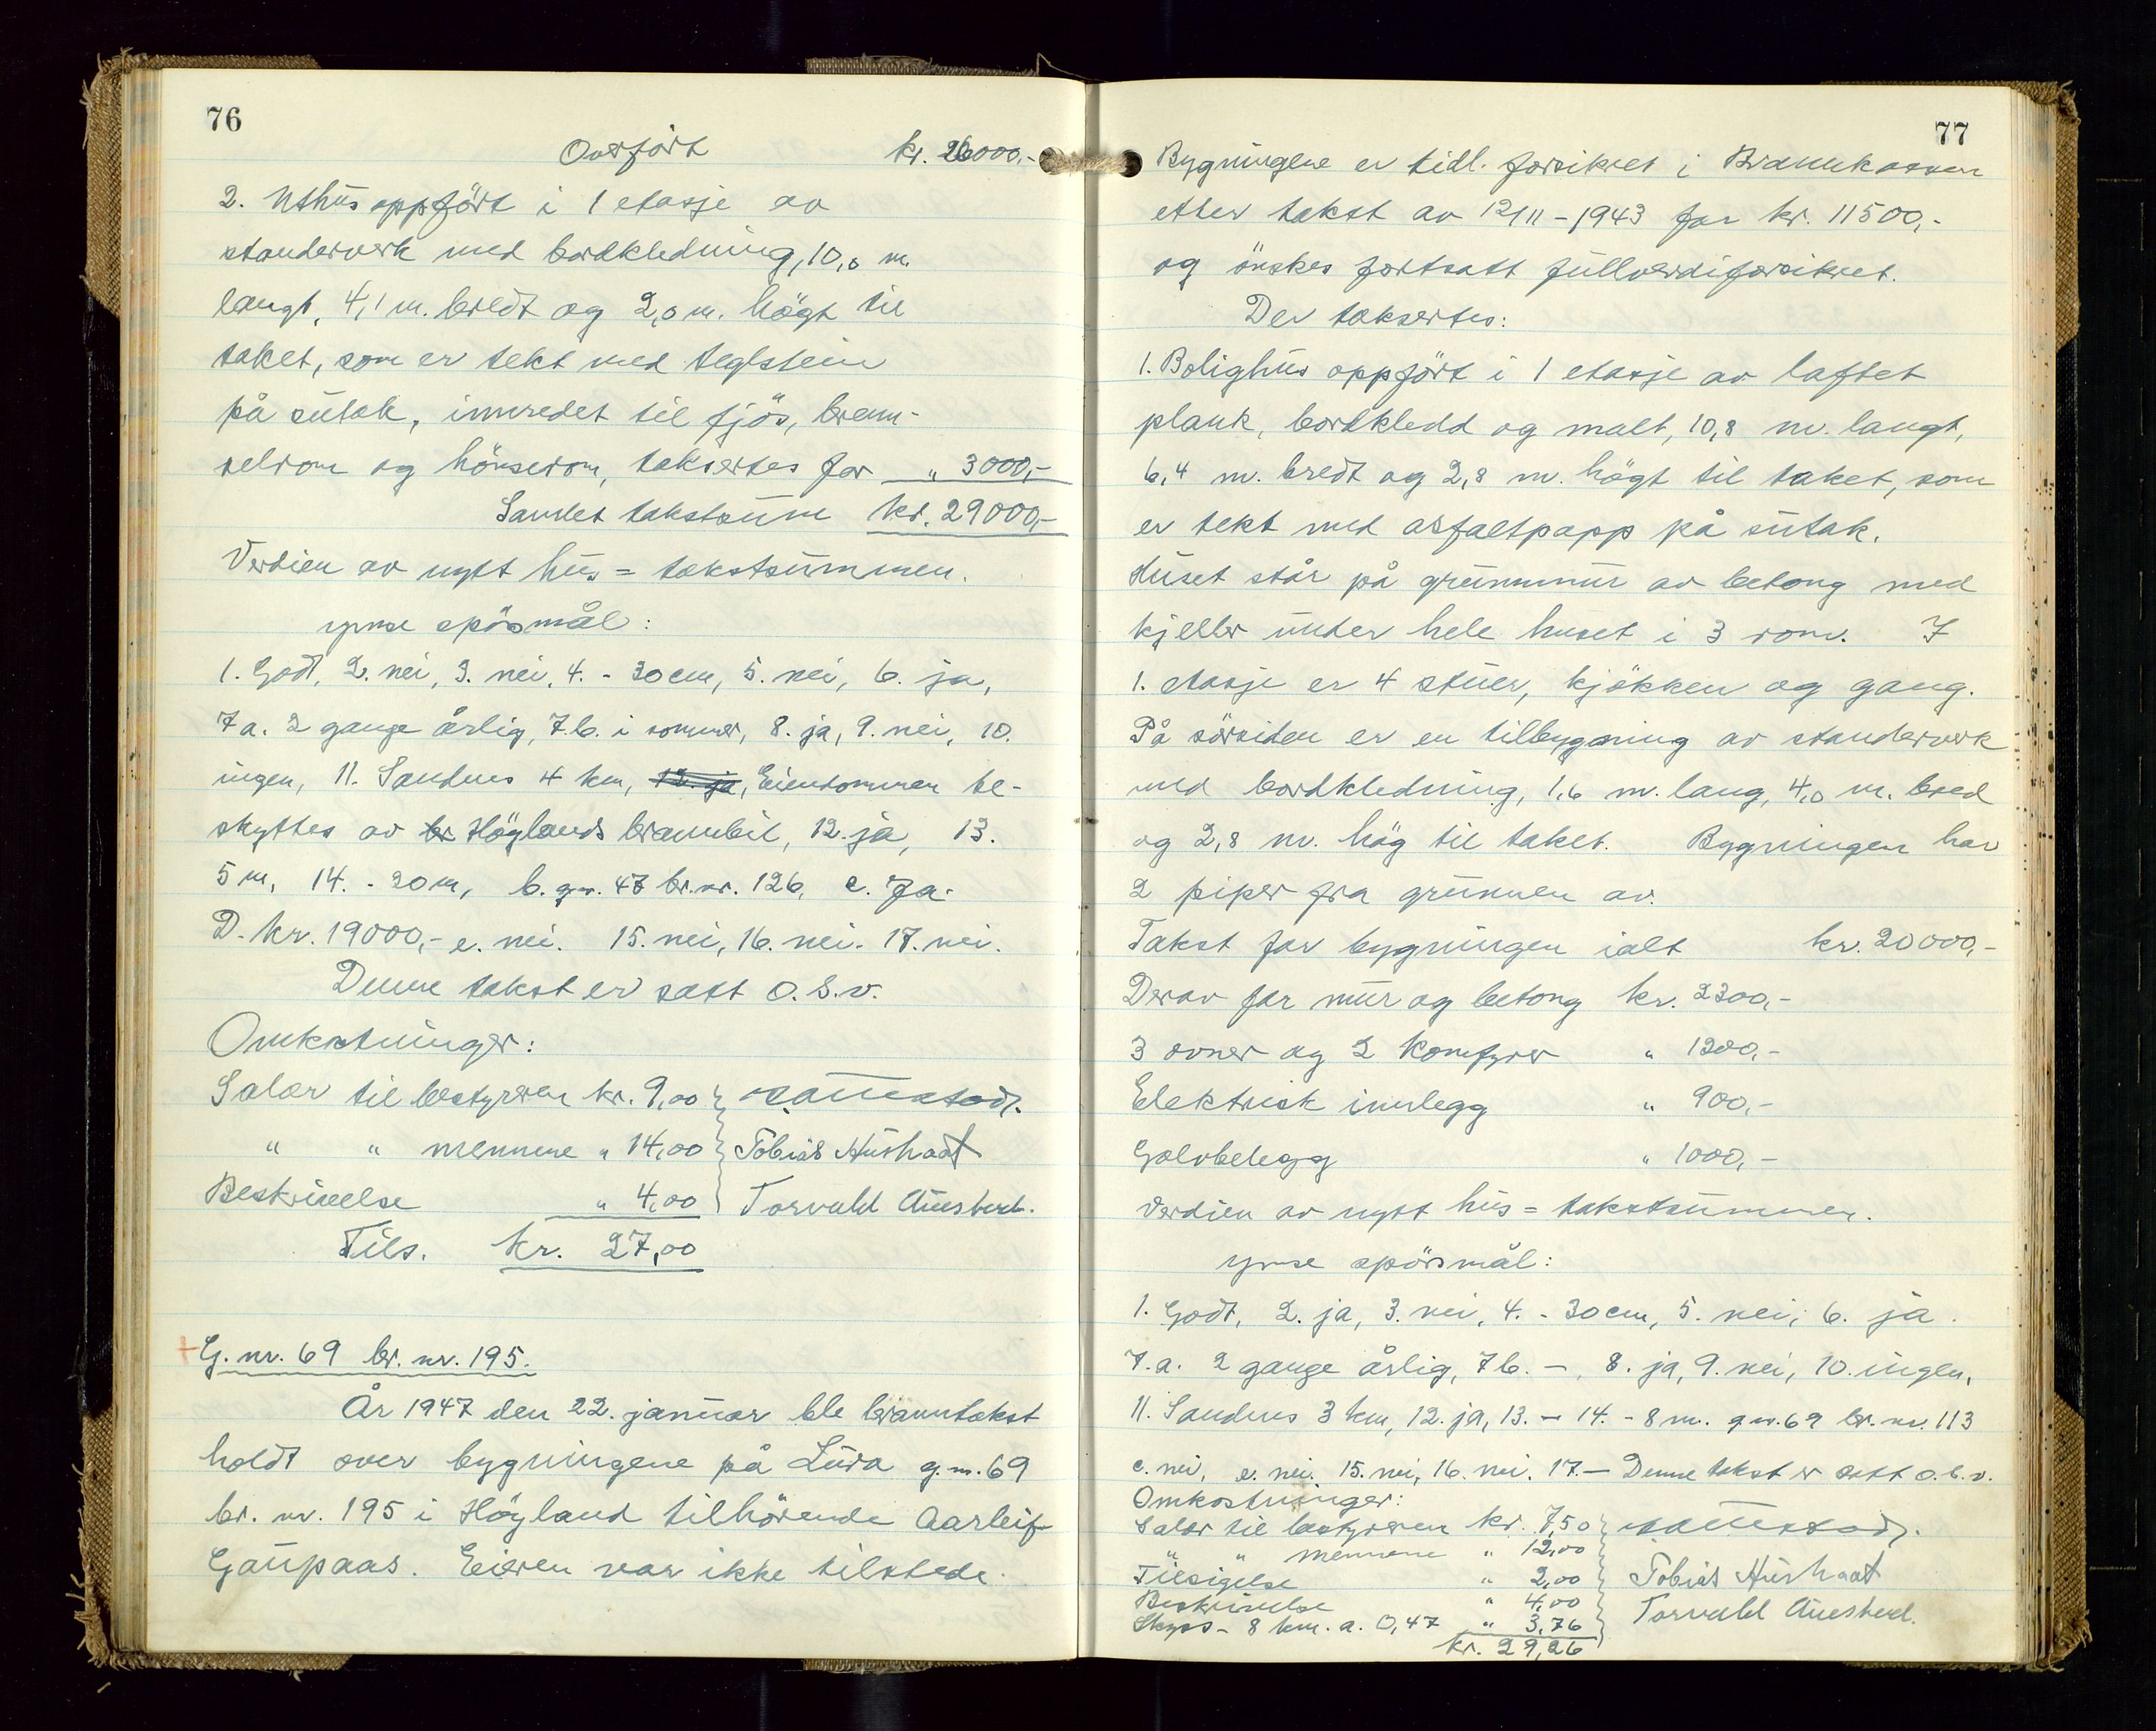 76
Overfört kr. 26000,-
2. Uthus oppfört i 1 etasje av
standerverk med bordkledning, 10,0 m.
langt, 4,1 m. bredt og 2,0 m. högt til
taket, som er tekt med teglstein
på sutak, innredet til fjös, bren-
selrom og hönserom, taksertes for " 3000,-
Samlet takstsum kr. 29000,-
Verdien av nytt hus = takstsummen.
ymse spörsmål:
1. Godt, 2. nei, 3. nei, 4. - 30 cm, 5. nei, 6. ja,
7 a. 2 gange årlig, 7.b. i sommer, 8. ja, 9. nei, 10.
ingen, 11. Sandnes 4 km, 12. ja, Eiendommen be-
skyttes av br Höylands brannbil, 12. ja, 13.
5 m, 14. - 20 m, b. g.nr. 47 br.nr. 126, c. Ja.
D. kr. 19000,- e. nei. 15. nei, 16. nei. 17. nei.
Denne takst er satt o.s.v.
Omkostninger:
Salær til bestyreren kr. 9,00
" " mennene " 14,00 Tobias Hushaat
Beskrivelse " 4,00 Torvald
Tils. kr. 27,00
G. nr. 69 br. nr. 195.
År 1947 den 22. januar ble branntakst
holdt over bygningene på Lura g.nr. 69
br. nr. 195 i Höyland tilhörende Aarleif
Gaupaas. Eieren var ikke tilstede.
77
Bygningene er tidl. forsikret i Brannkassen
etter takst av 12/11-1943 for kr. 11500,-
og önskes fortsatt fullverdiforsikret.
Der taksertes:
1. Bolighus oppfört i 1 etasje av laftet
plank, bordkledd og malt, 10,8 m. langt,
6,4 m. bredt og 2,8 m. högt til taket, som
er tekt med asfaltpapp på sutak.
Huset står på grunnmur av betong med
kjeller under hele huset i 3 rom. I
1. etasje er 4 stuer, kjökken og gang.
På sörsiden er en tilbygning av standerverk
med bordkledning, 1,6 m. lang, 4,0 m. bred
og 2,8 m. hög til taket. Bygningen har
2 piper fra grunnen av.
Takst for bygningen ialt kr. 20000,-
Derav for mur og betong kr. 2300,-
3 ovner og 2 komfyrer " 1200,-
Elektrisk innlegg " 900,-
Golvbelegg " 1000,-
Verdien av nytt hus = takstsummen.
ymse spörsmål:
1. Godt, 2. ja, 3. nei, 4. - 30 cm, 5. nei, 6. ja.
7.a. 2 gange årlig, 7 b. -, 8. ja, 9. nei, 10. ingen,
11. Sandnes 3 km, 12. ja, 13. - 14. - 8 m. g.nr. 69 br. nr. 113
c. nei, e. nei. 15. nei, 16. nei. 17. - Denne takst er satt o.s.v.
Omkostninger:
Salær til bestyreren kr. 7,50
" " mennene " 12,00
Tilsigelse " 2,00 Tobias Hushaat
Beskrivelse " 4,00
Skyss - 8 km. a. 0,47 " 3,76 Torvald
kr. 29,26